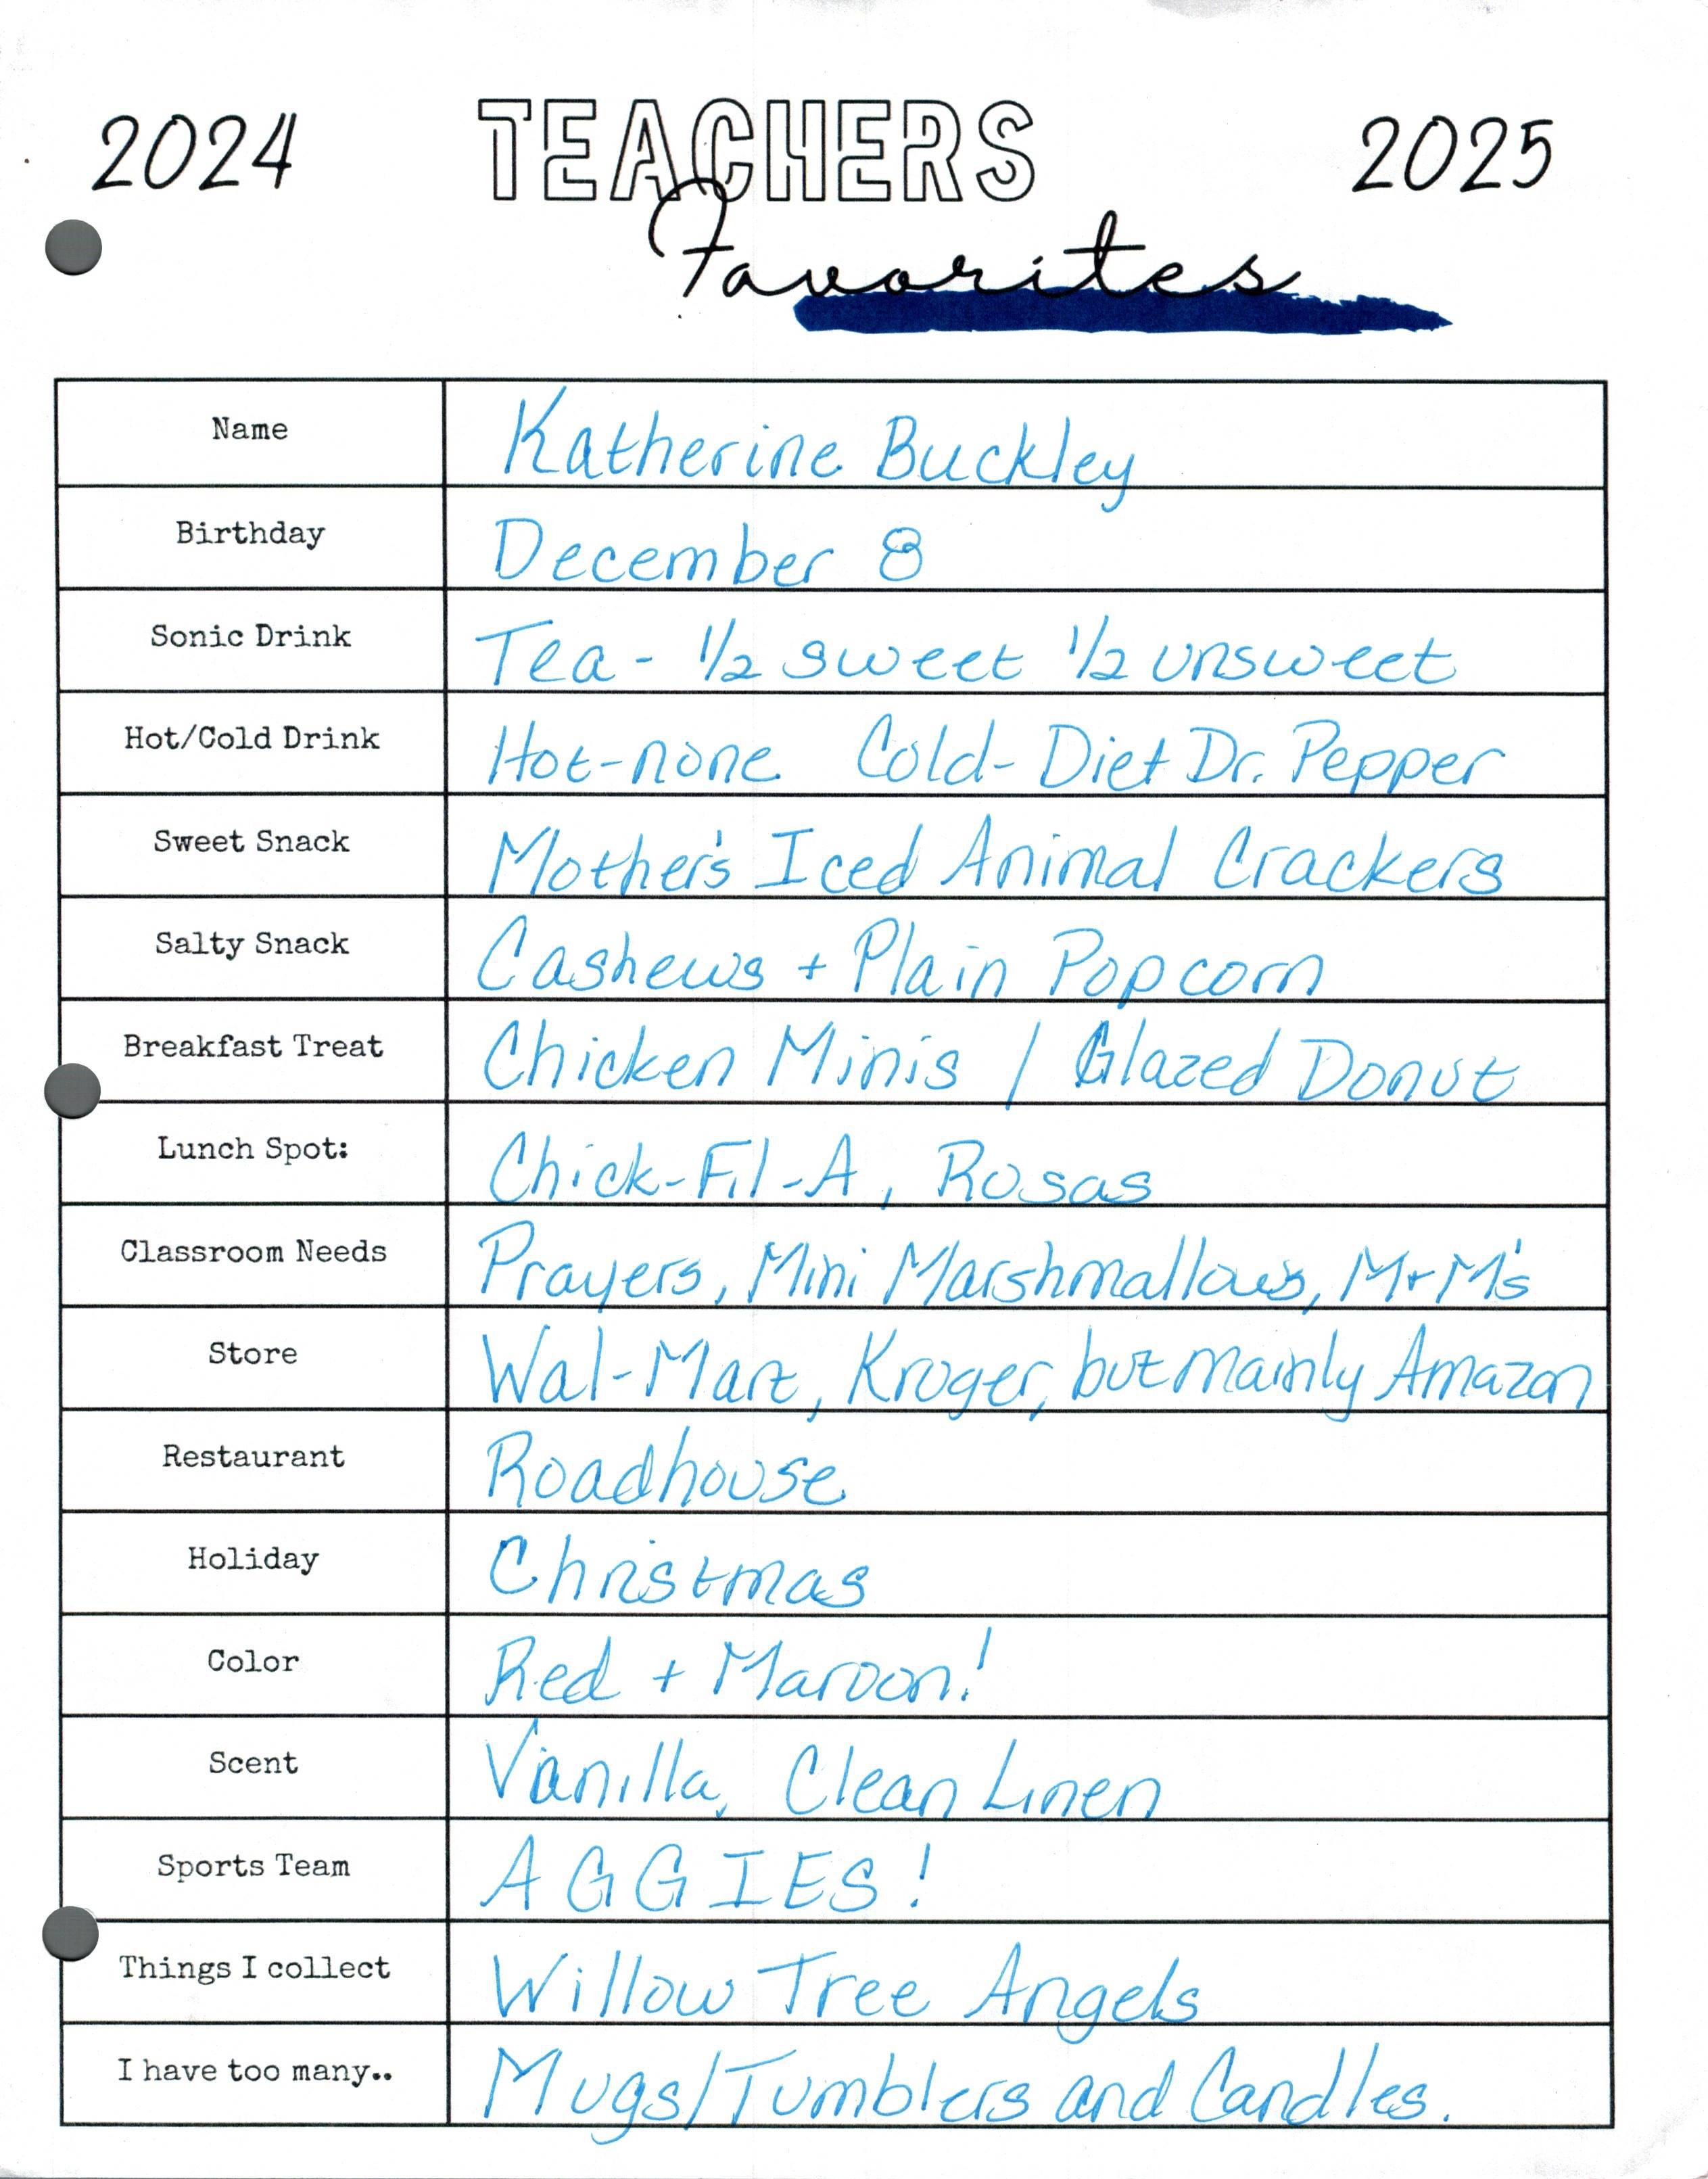 2024 TEACHERS 2025
Favorites
Name Katherine Buckley
Birthday December 8
Sonic Drink Tea - 1/2 sweet 1/2 unsweet
Hot/Cold Drink Hot-none Cold- Diet Dr. Pepper
Sweet Snack Mother's Iced Animal Crackers
Salty Snack Cashews + Plain Popcorn
Breakfast Treat Chicken Minis / Glazed Donut
Lunch Spot: Chick-Fil-A, Rosas
Classroom Needs Prayers, Mini Marshmallows, M+M's
Store Wal-Mart, Kroger, but mainly Amazon
Restaurant Roadhouse
Holiday Christmas
Color Red + Maroon!
Scent Vanilla, Clean Linen
Sports Team AGGIES!
Things I collect Willow Tree Angels
I have too many.. Mugs/Tumblers and Candles.